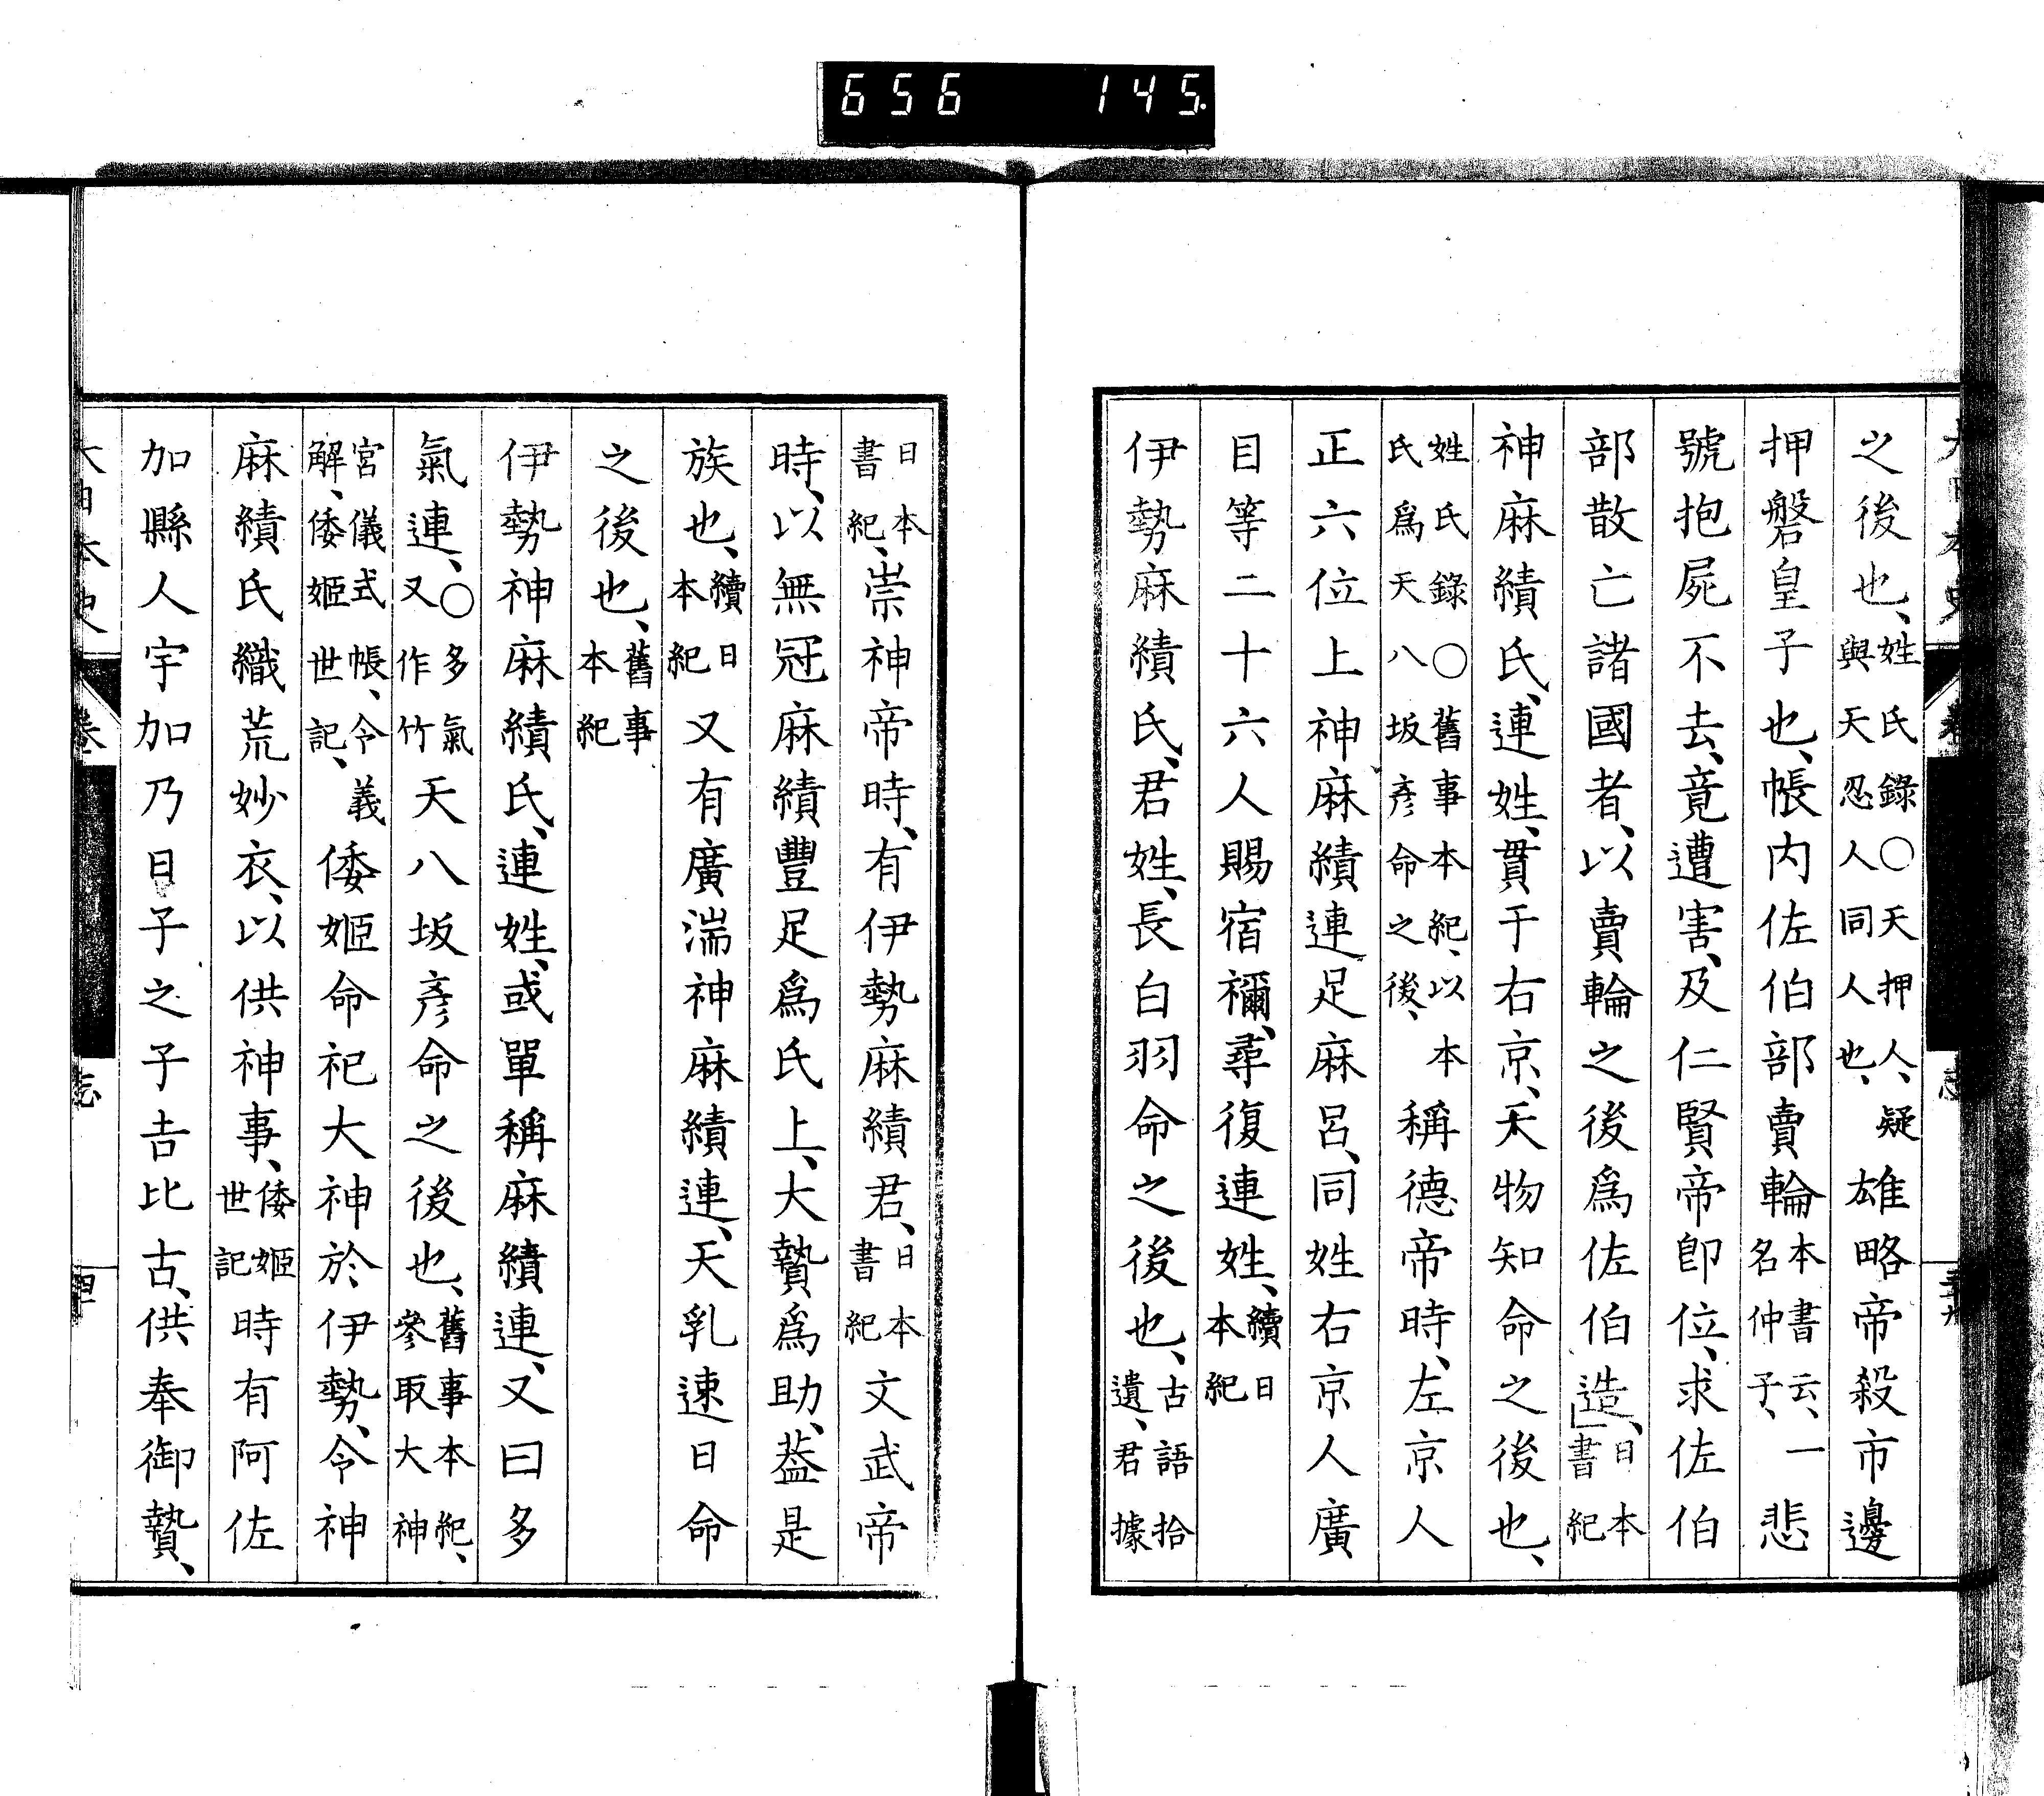 656 145.
之後也、姓氏錄〇天押人、疑與天忍人同人也、雄略帝殺市邊
押磐皇子也、帳內佐伯部賣輪本書云、一名仲子、悲
號抱屍不去、竟遭害、及仁賢帝卽位、求佐伯
部散亡諸國者、以賣輪之後爲佐伯造、日本書紀
神麻績氏、連姓、貫于右京、天物知命之後也、
姓氏錄〇舊事本紀、以本氏爲天八坂彥命之後、稱德帝時、左京人
正六位上神麻績連足麻呂、同姓右京人廣
目等二十六人賜宿禰、尋復連姓、續日本紀
伊勢麻績氏、君姓、長白羽命之後也、古語拾遺、君據
日本書紀、崇神帝時、有伊勢麻績君、日本書紀文武帝
時、以無冠麻績豐足爲氏上、大贄爲助、葢是
族也、續日本紀又有廣湍神麻績連、天乳速日命
之後也、舊事本紀
伊勢神麻績氏、連姓、或單稱麻績連、又曰多
氣連、〇多氣又作竹天八坂彥命之後也、舊事本紀、參取大神
宮儀式帳、令義解、倭姬世記、倭姬命祀大神於伊勢、令神
麻績氏織荒妙衣、以供神事、倭姬世記時有阿佐
加縣人宇加乃日子之子吉比古、供奉御贄、
大日本史
卷
志